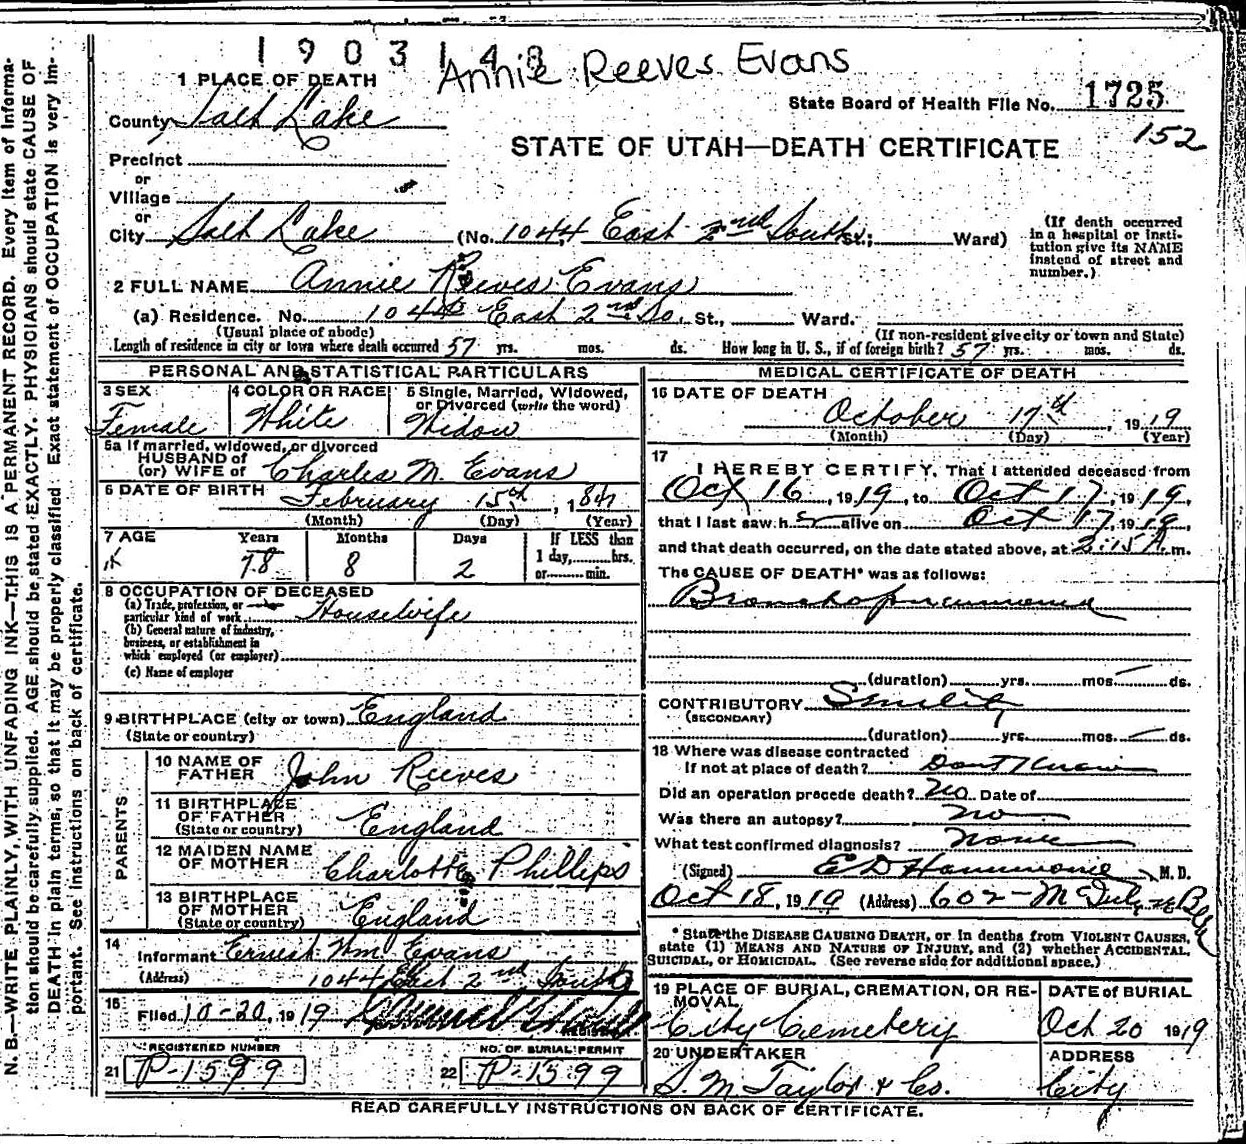 1903148
Annie Reeves Evans
1 PLACE OF DEATH
State Board of Health File No. 1725
152
County Salt Lake
STATE OF UTAH—DEATH CERTIFICATE
Precinct
or
Village
or
City Salt Lake (No. 1044 East 2nd South St.; Ward)
(If death occurred in a hospital or insti-
tution give its NAME
instead of street and
number.)
2 FULL NAME Annie Reeves Evans
(a) Residence. No. 1044 East 2nd So. St., Ward.
(Usual place of abode) (If non-resident give city or town and State)
Length of residence in city or town where death occurred 57 yrs. mos. ds. How long in U. S., if of foreign birth? 57 yrs. mos. ds.
PERSONAL AND STATISTICAL PARTICULARS
3 SEX
Female
4 COLOR OR RACE
White
5 Single, Married, Widowed,
or Divorced (write the word)
Widow
5a If married, widowed, or divorced
HUSBAND of
(or) WIFE of Charles M. Evans
6 DATE OF BIRTH February 15th, 1841
(Month) (Day) (Year)
7 AGE Years Months Days If LESS than
1 day, hrs.
or min.
78 8 2
8 OCCUPATION OF DECEASED
(a) Trade, profession, or
particular kind of work Housewife
(b) General nature of industry,
business, or establishment in
which employed (or employer)
(c) Name of employer
9 BIRTHPLACE (city or town) England
(State or country)
PARENTS
10 NAME OF
FATHER John Reeves
11 BIRTHPLACE
OF FATHER
(State or country) England
12 MAIDEN NAME
OF MOTHER Charlotte Phillips
13 BIRTHPLACE
OF MOTHER
(State or country) England
14
Informant Ernest Wm. Evans
(Address) 1044 East 2nd South
15
Filed 10-20, 1919
REGISTRAR
REGISTERED NUMBER
21 P-1599
NO. OF BURIAL PERMIT
22 P-1599
MEDICAL CERTIFICATE OF DEATH
16 DATE OF DEATH
October 17th, 1919
(Month) (Day) (Year)
17
I HEREBY CERTIFY, That I attended deceased from
Oct 16, 1919, to Oct 17, 1919,
that I last saw her alive on Oct 17, 1919,
and that death occurred, on the date stated above, at 2:15 A. m.
The CAUSE OF DEATH* was as follows:
Bronchopneumonia
(duration) yrs. mos. ds.
CONTRIBUTORY Senility
(SECONDARY)
(duration) yrs. mos. ds.
18 Where was disease contracted
If not at place of death? Dont Know
Did an operation precede death? No Date of
Was there an autopsy? No
What test confirmed diagnosis? None
(Signed) E D Hammond M. D.
Oct 18, 1919 (Address) 602
* State the DISEASE CAUSING DEATH, or in deaths from VIOLENT CAUSES,
state (1) MEANS AND NATURE OF INJURY, and (2) whether ACCIDENTAL,
SUICIDAL, or HOMICIDAL. (See reverse side for additional space.)
19 PLACE OF BURIAL, CREMATION, OR RE-
MOVAL
City Cemetery
DATE of BURIAL
Oct 20 1919
20 UNDERTAKER
S. M. Taylor & Co.
ADDRESS
City
READ CAREFULLY INSTRUCTIONS ON BACK OF CERTIFICATE.
N. B.—WRITE PLAINLY, WITH UNFADING INK—THIS IS A PERMANENT RECORD. Every item of Informa-
tion should be carefully supplied. AGE should be stated EXACTLY. PHYSICIANS should state CAUSE OF
DEATH in plain terms, so that it may be properly classified. Exact statement of OCCUPATION is very im-
portant. See instructions on back of certificate.